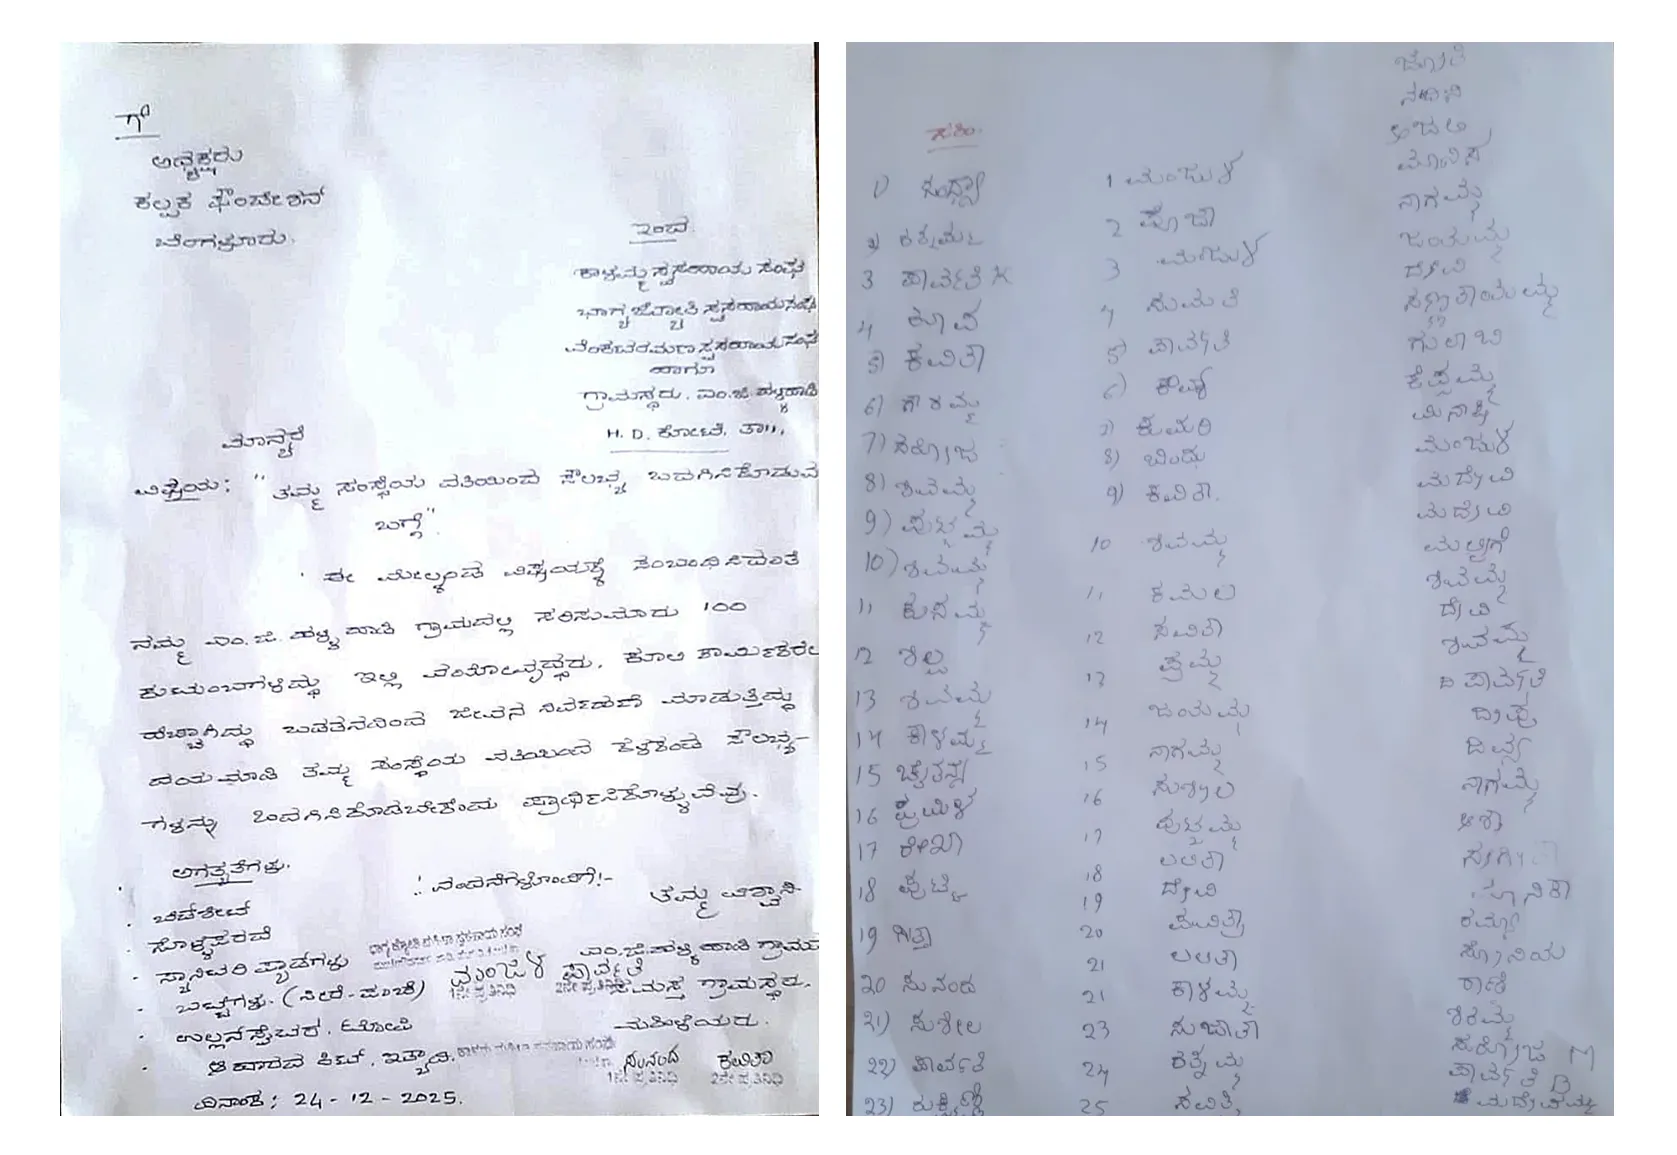 ಗೆ
ಅಧ್ಯಕ್ಷರು
ಕಲ್ಪಕ ಫೌಂಡೇಶನ್
ಬೆಂಗಳೂರು.
ಇಂದ
ಕಾಳಮ್ಮ ಸ್ವಸಹಾಯ ಸಂಘ
ಭಾಗ್ಯಜ್ಯೋತಿ ಸ್ವಸಹಾಯ ಸಂಘ
ವೆಂಕಟರಮಣ ಸ್ವಸಹಾಯ ಸಂಘ
ಹಾಗೂ
ಗ್ರಾಮಸ್ಥರು. ಎಂ.ಜಿ.ಹಳ್ಳಿಹಾಡಿ
H. D. ಕೋಟೆ. ತಾ||,
ಮಾನ್ಯರೆ
ವಿಷಯ: "ತಮ್ಮ ಸಂಸ್ಥೆಯ ವತಿಯಿಂದ ಸೌಲಭ್ಯ ಒದಗಿಸಿಕೊಡುವ
ಬಗ್ಗೆ".
ಈ ಮೇಲ್ಕಂಡ ವಿಷಯಕ್ಕೆ ಸಂಬಂಧಿಸಿದಂತೆ
ನಮ್ಮ ಎಂ.ಜಿ. ಹಳ್ಳಿ ಹಾಡಿ ಗ್ರಾಮದಲ್ಲಿ ಸರಿಸುಮಾರು 100
ಕುಟುಂಬಗಳಿದ್ದು ಇಲ್ಲಿ ವಯೋವೃದ್ಧರು. ಕೂಲಿ ಕಾರ್ಮಿಕರೇ
ಹೆಚ್ಚಾಗಿದ್ದು ಬಡತನದಿಂದ ಜೀವನ ನಿರ್ವಹಣೆ ಮಾಡುತ್ತಿದ್ದು
ದಯಮಾಡಿ ತಮ್ಮ ಸಂಸ್ಥೆಯ ವತಿಯಿಂದ ಕೆಳಕಂಡ ಸೌಲಭ್ಯ-
ಗಳನ್ನು ಒದಗಿಸಿಕೊಡಬೇಕೆಂದು ಪ್ರಾರ್ಥಿಸಿಕೊಳ್ಳುವೆವು.
ಅಗತ್ಯತೆಗಳು.
: ವಂದನೆಗಳೊಂದಿಗೆ!-
ತಮ್ಮ ವಿಶ್ವಾಸಿ
· ಬೆಡ್‌ಶೀಟ್
· ಸೊಳ್ಳೆಪರದೆ
· ಸ್ಯಾನಿಟರಿ ಪ್ಯಾಡ್‌ಗಳು
ಭಾಗ್ಯಜ್ಯೋತಿ ಮಹಿಳಾ ಸ್ವಸಹಾಯ ಸಂಘ
ಎಂ.ಜಿ.ಹಳ್ಳಿ ಹಾಡಿ ಗ್ರಾಮದ
ಮಂಜುಳ ಪಾರ್ವತಿ
1ನೇ ಪ್ರತಿನಿಧಿ 2ನೇ ಪ್ರತಿನಿಧಿ
ಸಮಸ್ತ ಗ್ರಾಮಸ್ಥರು.
· ಬಟ್ಟೆಗಳು. (ಸೀರೆ-ಪಂಚೆ)
· ಉಲ್ಲನ್ ಸ್ವೆಟರ್, ಟೋಪಿ
-ಮಹಿಳೆಯರು.
· ಆಹಾರದ ಕಿಟ್. ಇತ್ಯಾದಿ.
ಸುನಂದ ಕವಿತಾ
1ನೇ ಪ್ರತಿನಿಧಿ 2ನೇ ಪ್ರತಿನಿಧಿ
ದಿನಾಂಕ: 24-12-2025.
1) ಸಂಧ್ಯಾ
2) ರತ್ನಮ್ಮ
3 ಪಾರ್ವತಿ K
4
5) ಕವಿತಾ
6) ಗೌರಮ್ಮ
7) ಸರೋಜ
8) ಶಿವಮ್ಮ
9) ಪುಟ್ಟಮ್ಮ
10) ಶಿವಮ್ಮ
11
12 ಶಿಲ್ಪ
13 ಶಿವಮ್ಮ
14 ಕಾಳಮ್ಮ
15 ಚೈತನ್ಯ
16 ಪ್ರಮಿಳ
17 ರೇಖಾ
18 ಪುಟ್ಟಿ
19 ಗೀತಾ
20 ಸುನಂದ
21) ಸುಶೀಲ
22) ಪಾರ್ವತಿ
23) ರುಕ್ಮಿಣಿ
1 ಮಂಜುಳ
2 ಪೂಜಾ
3 ಮಂಜುಳ
4 ಸುಮತಿ
5) ಪಾರ್ವತಿ
6) ಕಾವ್ಯ
7) ಕುಮಾರಿ
8) ಬಿಂದು
9) ಕವಿತಾ.
10 ಶಿವಮ್ಮ
11 ಕಮಲ
12 ಸವಿತಾ
13 ಪ್ರೇಮ
14 ಜಯಮ್ಮ
15 ನಾಗಮ್ಮ
16 ಸುಶೀಲ
17 ಪುಟ್ಟಮ್ಮ
18 ಲಲಿತಾ
19 ದೇವಿ
20 ಪವಿತ್ರಾ
21 ಲಲಿತಾ
21 ಕಾಳಮ್ಮ
23 ಸುಜಾತಾ
24 ರತ್ನಮ್ಮ
25 ಸವಿತ್ರಿ
ಜ್ಯೋತಿ
ನಂದಿನಿ
ಅಂಜಲಿ
ಮೋನಿಷ
ನಾಗಮ್ಮ
ಜಯಮ್ಮ
ದೇವಿ
ಸಣ್ಣತಾಯಮ್ಮ
ಗುಲಾಬಿ
ಕೆಪ್ಪಮ್ಮ
ಮೀನಾಕ್ಷಿ
ಮಂಜುಳ
ಮದೇವಿ
ಮದೇವಿ
ಮಲ್ಲಿಗೆ
ಶಿವಮ್ಮ
ದೇವಿ
ಶಿವಮ್ಮ
ಪಾರ್ವತಿ
ದೀಪು
ದಿವ್ಯ
ನಾಗಮ್ಮ
ಆಶಾ
ಸಂಗೀತಾ
ರಮ್ಯಾ
ಸೋನಿಯ
ರಾಣಿ
ಸರೋಜ M
ಪಾರ್ವತಿ B